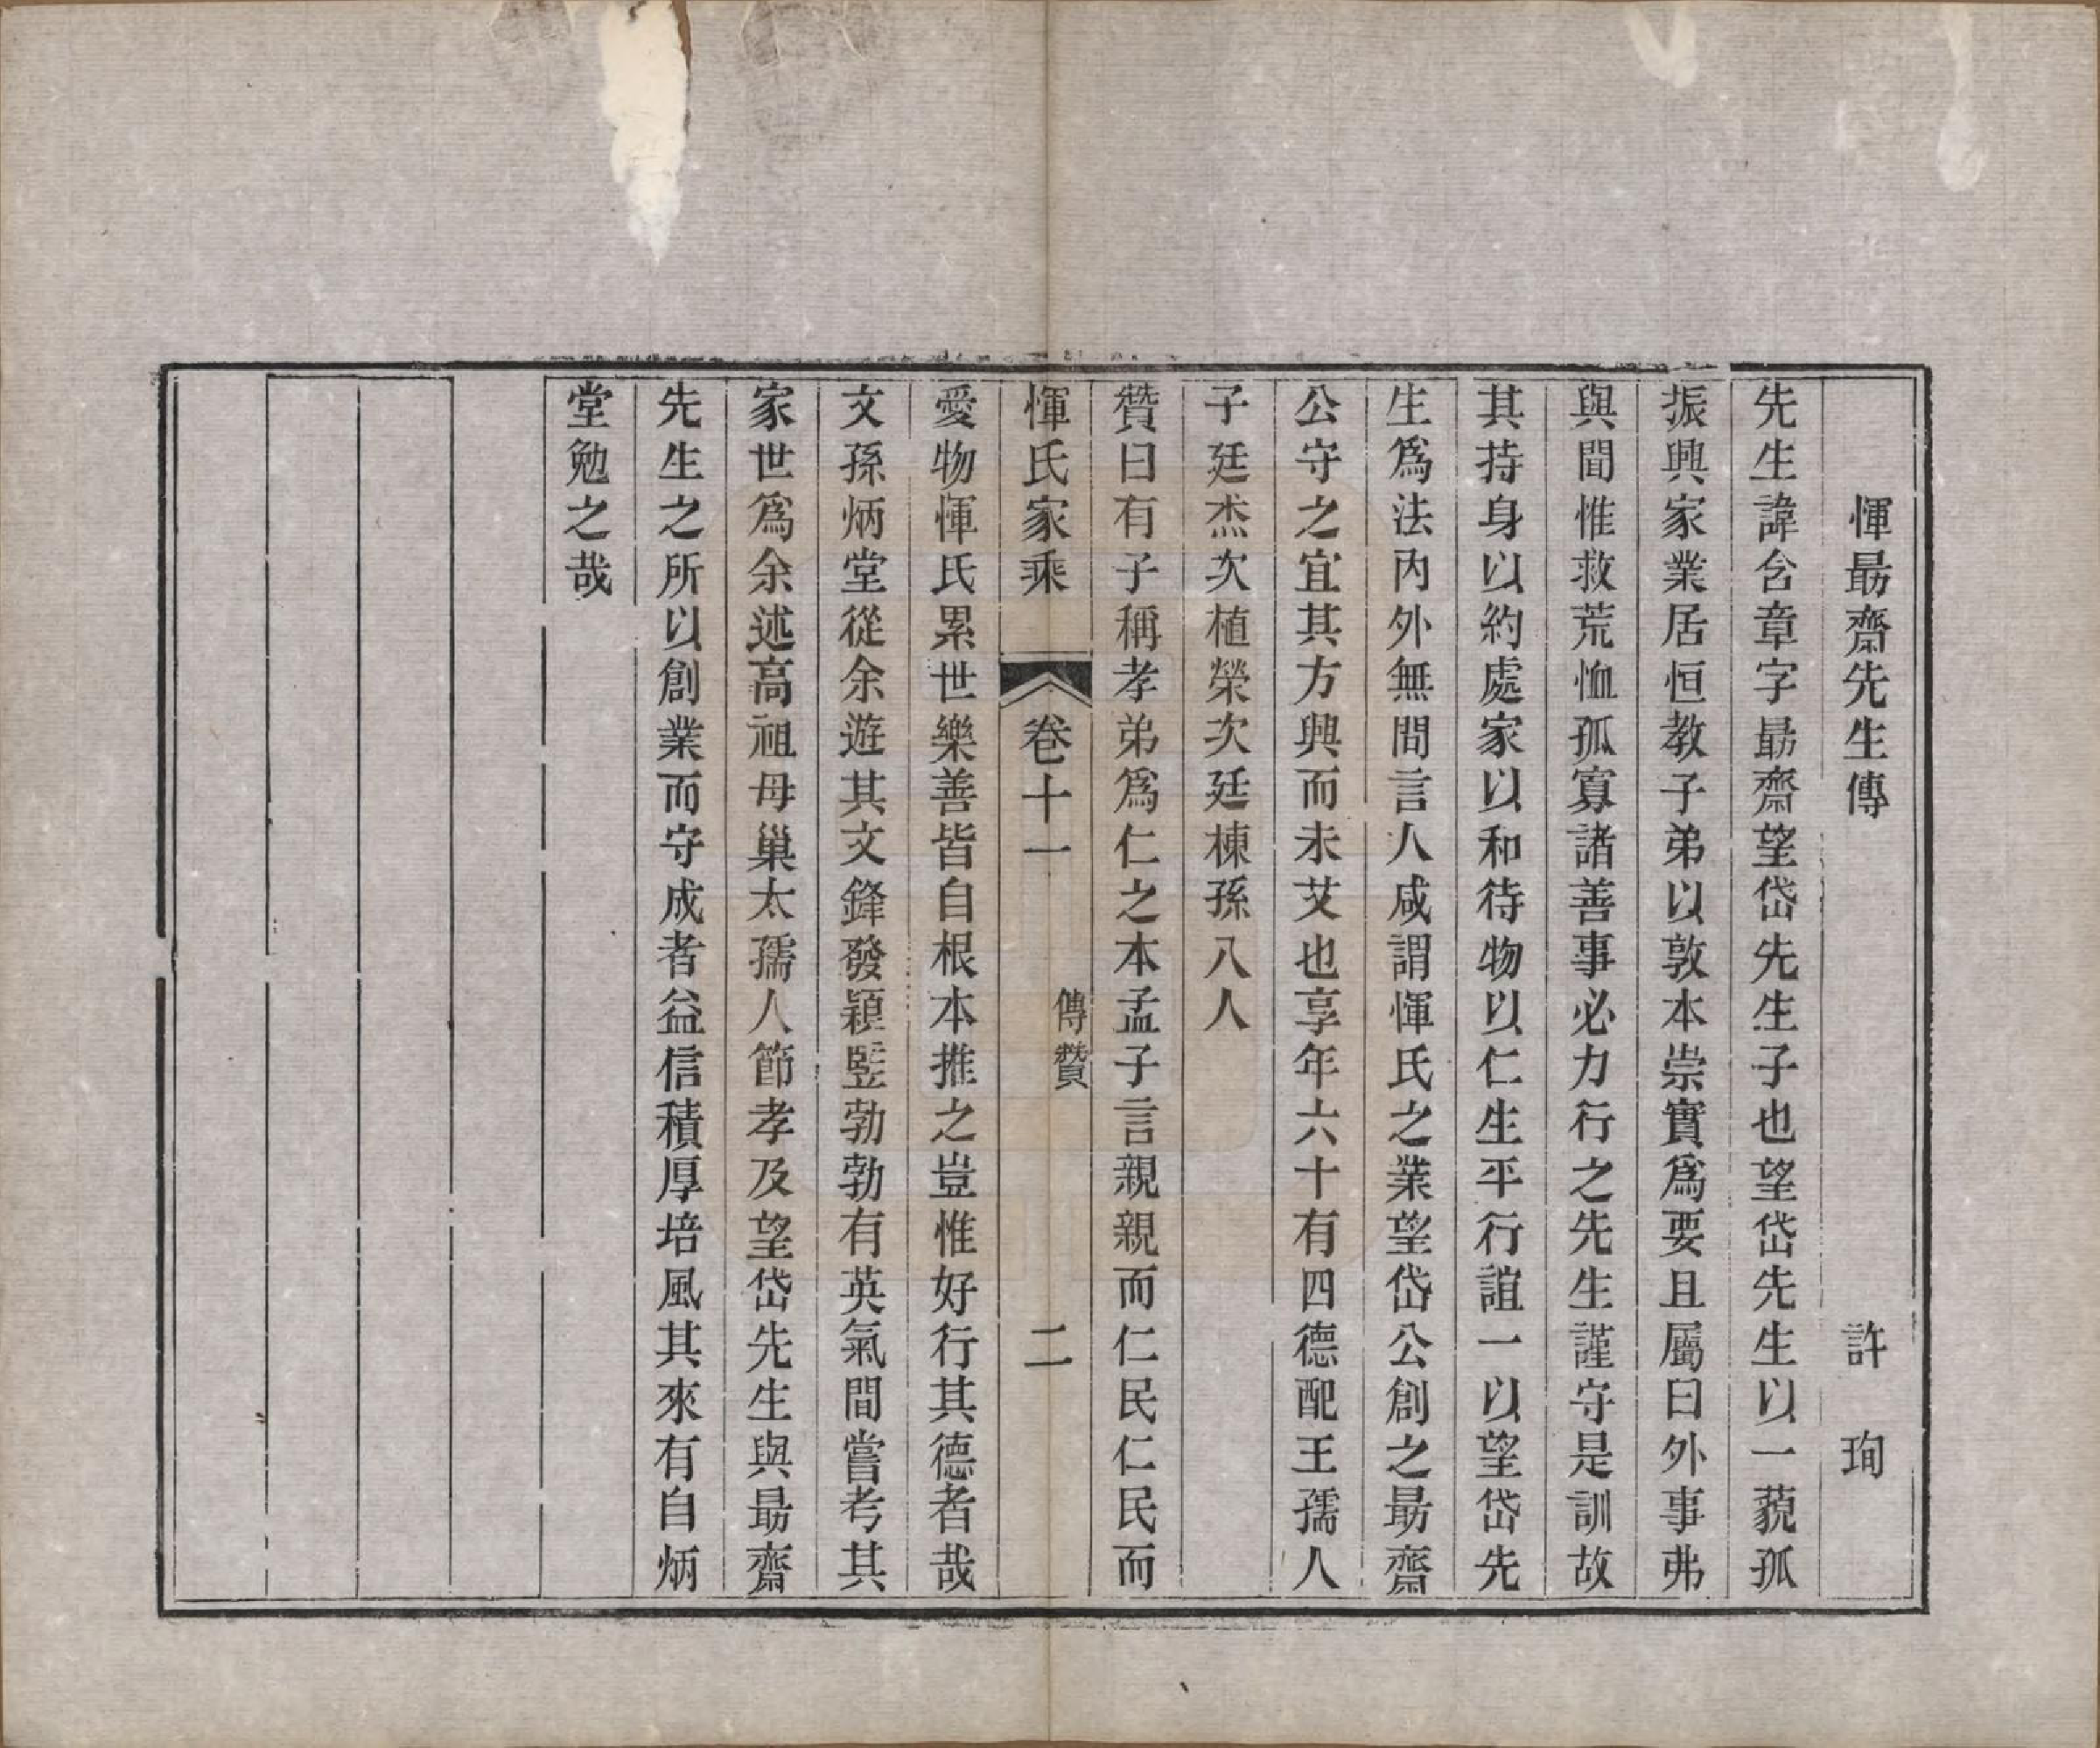 惲最齋先生傳　許珣
先生諱含章字最齋望岱先生子也望岱先生以一藐孤
振興家業居恒教子弟以敦本崇實爲要且屬曰外事弗
與聞惟救荒恤孤寡諸善事必力行之先生謹守是訓故
其持身以約處家以和待物以仁生平行誼一以望岱先
生爲法內外無間言人咸謂惲氏之業望岱公創之最齋
公守之宜其方興而未艾也享年六十有四德配王孺人
子廷杰次植榮次廷棟孫八人
贊曰有子稱孝弟爲仁之本孟子言親親而仁民仁民而
惲氏家乘　卷十一　傳贊　二
愛物惲氏累世樂善皆自根本推之豈惟好行其德者哉
文孫炳堂從余遊其文鋒發穎豎勃勃有英氣間嘗考其
家世爲余述高祖母巢太孺人節孝及望岱先生與最齋
先生之所以創業而守成者益信積厚培風其來有自炳
堂勉之哉